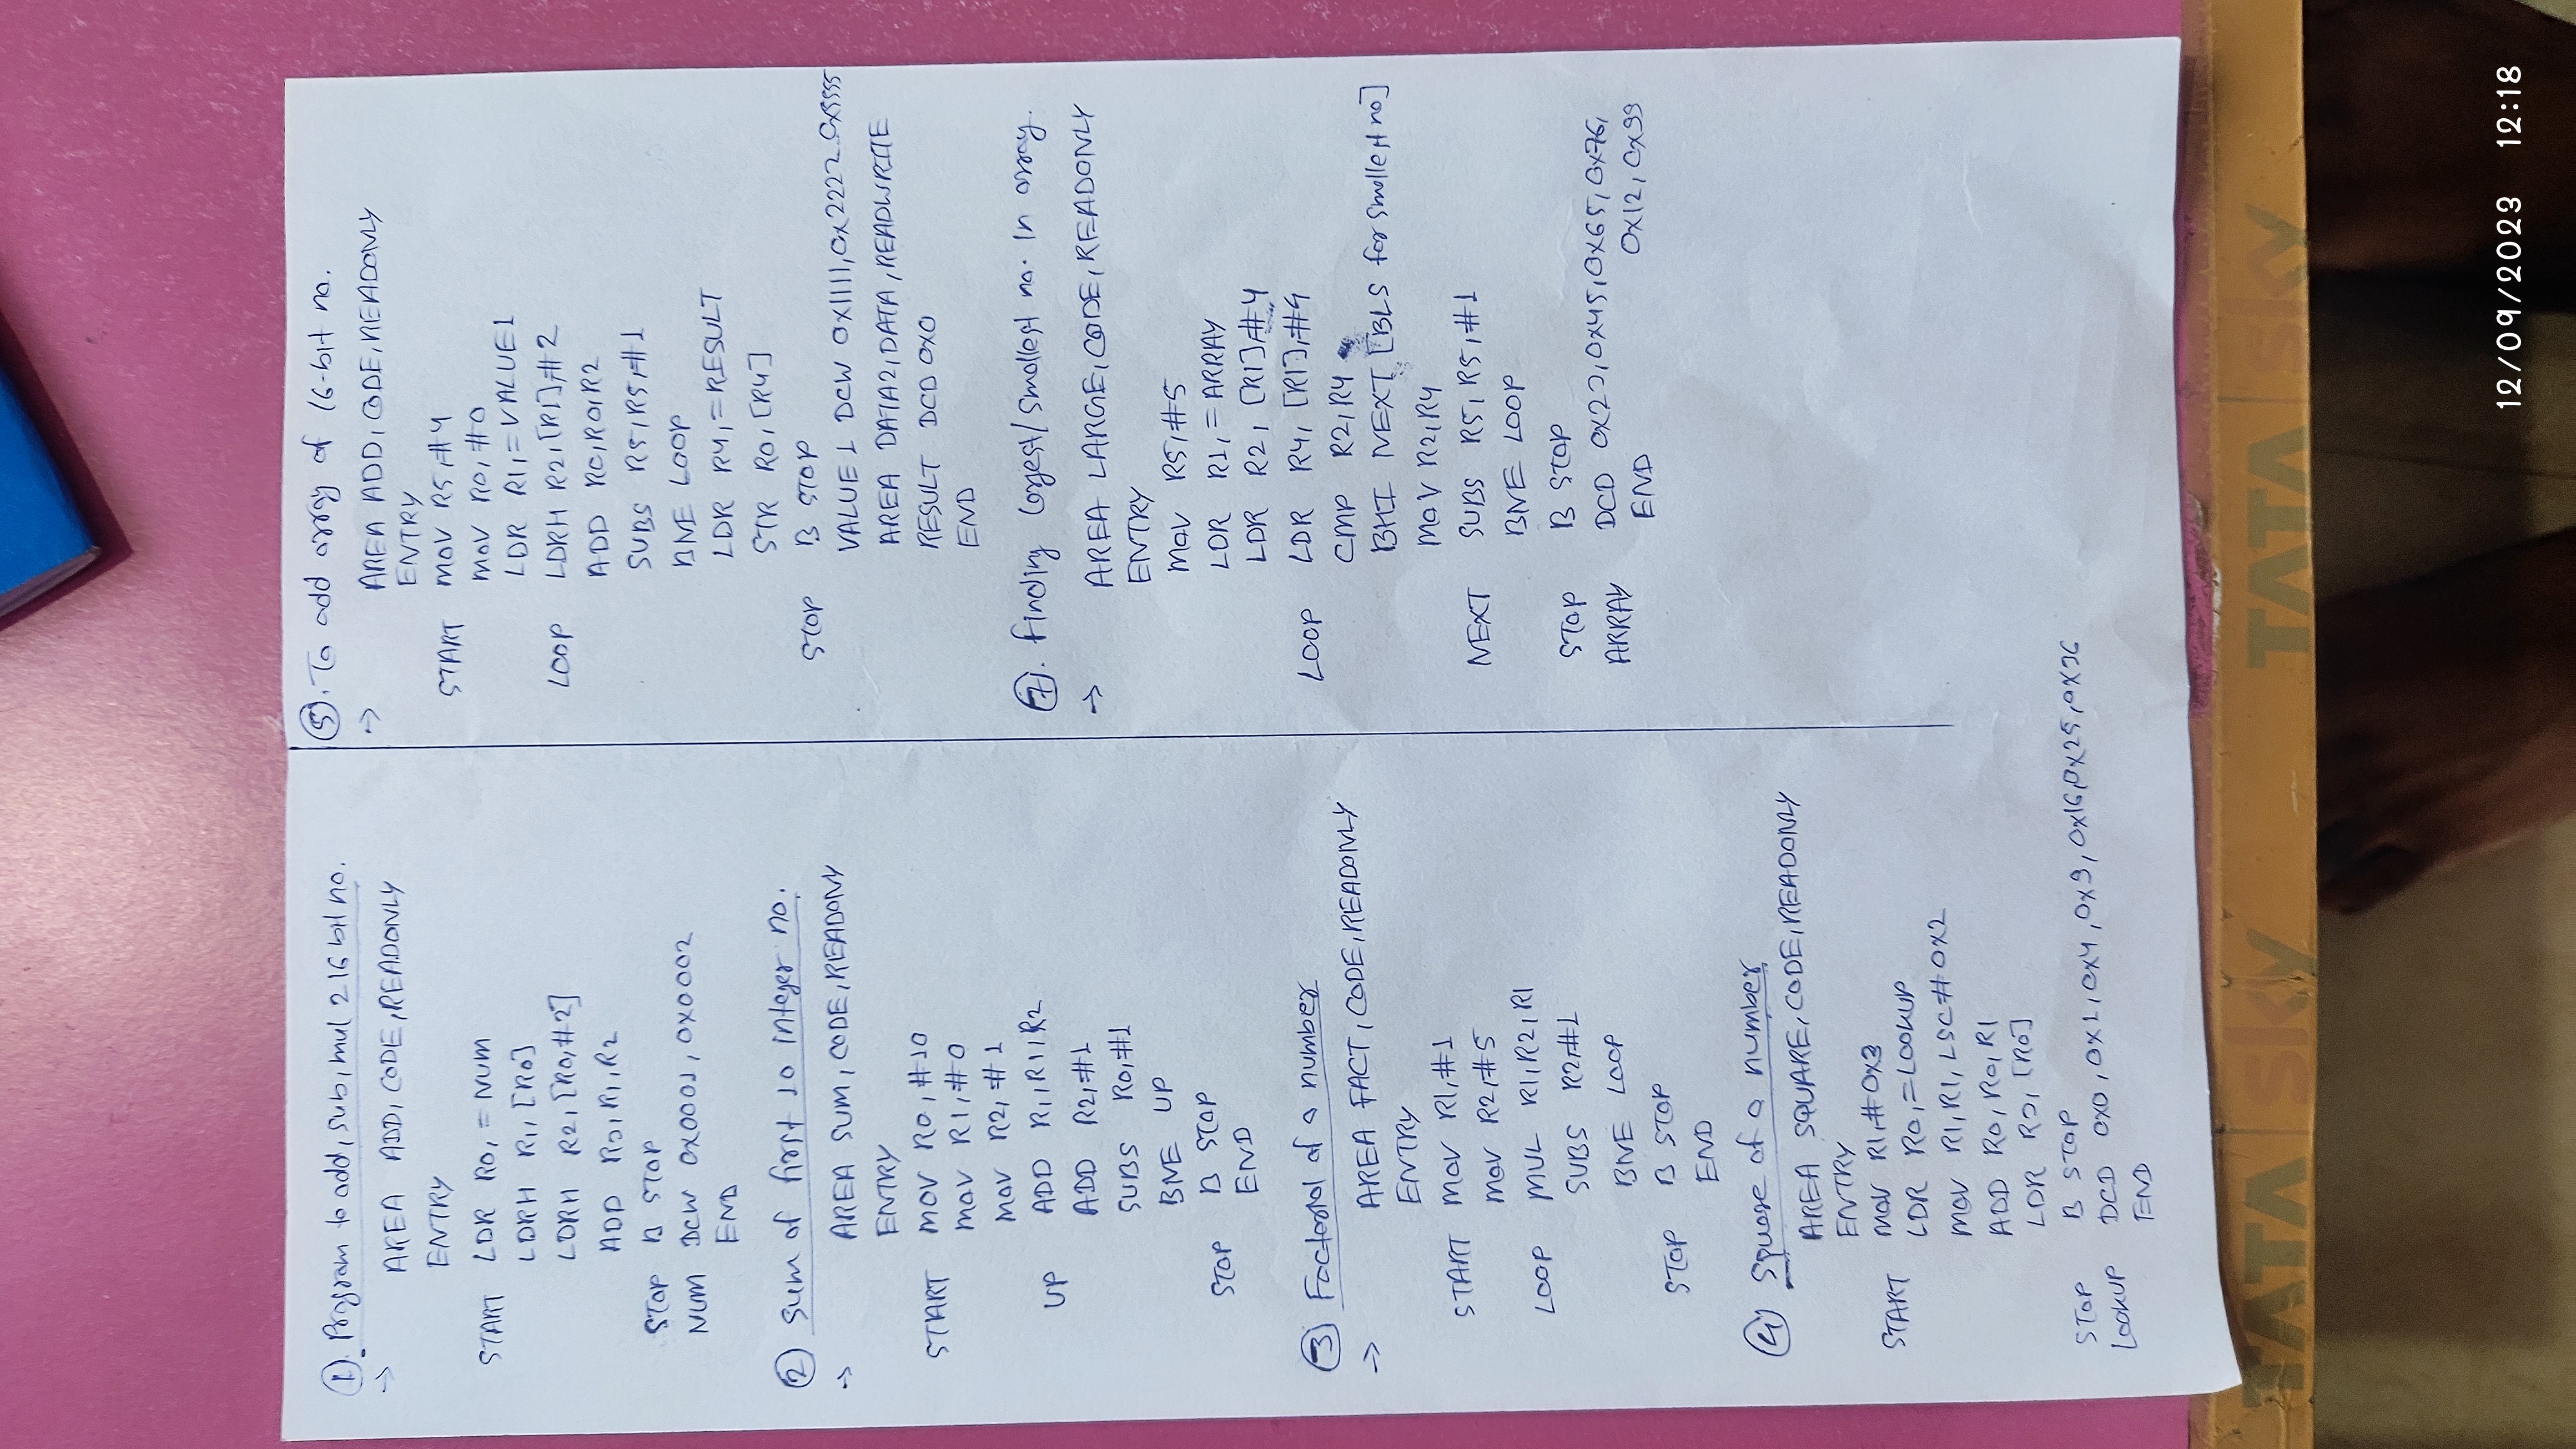 1. Program to add, sub, mul 2 16 bit no.
→ AREA ADD, CODE, READONLY
ENTRY
START LDR R0, = NUM
LDRH R1, [R0]
LDRH R2, [R0,#2]
ADD R3, R1, R2
STOP B STOP
NUM DCW 0X0001, 0X0002
END
2 Sum of first 10 integer no.
→ AREA SUM, CODE, READONY
ENTRY
START MOV R0, #10
MOV R1, #0
MOV R2, #1
UP ADD R1, R1, R2
ADD R2, #1
SUBS R0, #1
BNE UP
STOP B STOP
END
3 Factorial of a number
→ AREA FACT, CODE, READONLY
ENTRY
START MOV R1, #1
MOV R2, #5
LOOP MUL R1, R2, R1
SUBS R2, #1
BNE LOOP
STOP B STOP
END
4 Square of a number
AREA SQUARE, CODE, READONLY
ENTRY
START MOV R1, #0X3
LDR R0, =LOOKUP
MOV R1, R1, LSC#0X2
ADD R0, R0, R1
LDR R3, [R0]
STOP B STOP
LOOKUP DCD 0X0, 0X1, 0X4, 0X9, 0X16, 0X25, 0X36
END
5. To add array of 16-bit no.
→ AREA ADD, CODE, READONLY
ENTRY
START MOV R5, #4
MOV R0, #0
LDR R1, =VALUE1
LOOP LDRH R2, [R1],#2
ADD R0, R0, R2
SUBS R5, R5, #1
BNE LOOP
LDR R4, =RESULT
STR R0, [R4]
STOP B STOP
VALUE1 DCW 0X1111, 0X2222 0X5555
AREA DATA2, DATA, READWRITE
RESULT DCD 0X0
END
7. Finding largest/smallest no. in array.
→ AREA LARGE, CODE, READONLY
ENTRY
MOV R5, #5
LDR R1, =ARRAY
LDR R2, [R1],#4
LOOP LDR R4, [R1],#4
CMP R2, R4
BHI NEXT [BLS for smallest no]
MOV R2, R4
NEXT SUBS R5, R5, #1
BNE LOOP
STOP B STOP
ARRAY DCD 0X23, 0X45, 0X65, 0X76,
0X12, 0X99
END
TATA sky TATA sky
12/09/2023 12:18